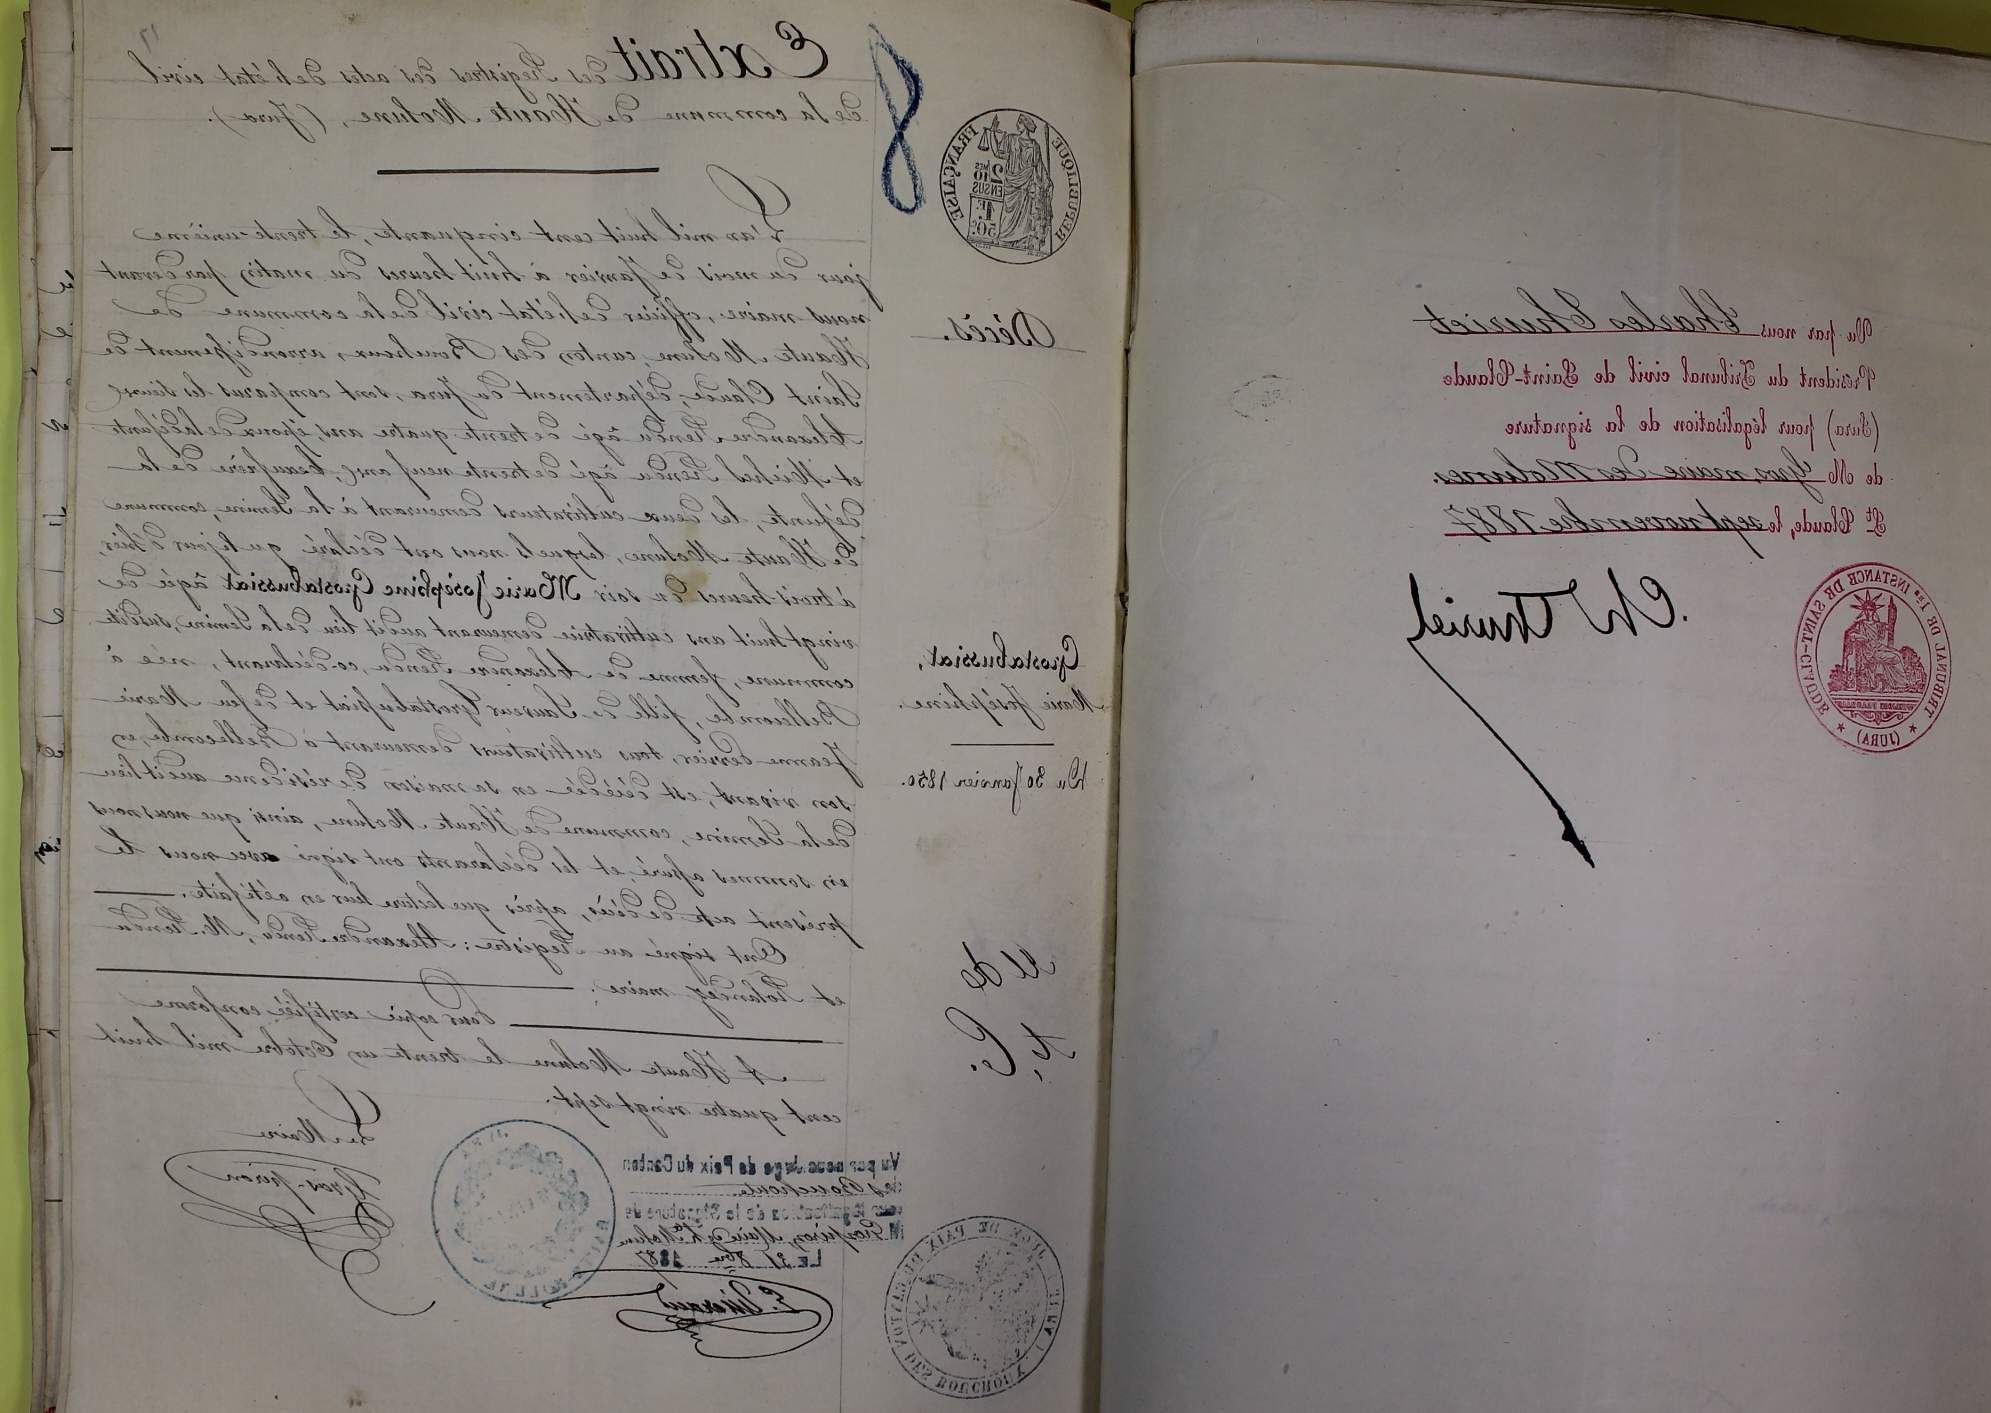 17
Extrait des Registres des actes de l'état civil
de la commune de Haute Molune, (Jura).
8
RÉPUBLIQUE FRANÇAISE
2 10 MES
EN SUS
1F
50C
Décès.
Grostabussiat,
Marie Joséphine.
Du 30 Janvier 1850.
L'an mil huit cent cinquante, le trente-unième
jour du mois de Janvier à huit heures du matin, par devant
nous maire, officier de l'état civil de la commune de
Haute Molune, canton des Bouchoux, arrondissement de
Saint Claude, département du Jura, sont comparus les sieurs
Alexandre Perrod âgé de trente quatre ans, époux de la défunte
et Michel Perrod âgé de trente neuf ans, beaufrère de la
défunte, les deux cultivateurs demeurant à la Semine, commune
de Haute Molune, lesquels nous ont déclaré que le jour d'hier,
à trois heures du soir Marie Joséphine Grostabussiat âgée de
vingt huit ans cultivatrice demeurant au dit lieu de la Semine, susdite
commune, femme de Alexandre, co-déclarant, née à
Bellecombe, fille de Grostabussiat et de feu Marie
Jeanne tous cultivateurs demeurant à Bellecombe, en
son vivant, est décédée en sa maison de résidence audit lieu
de la Semine, commune de Haute Molune, ainsi que nous nous
en sommes assuré, et les déclarants ont signé avec nous le
présent acte de décès, après que lecture leur en a été faite.
Ont signé au Registre : Alexandre
et maire.
Pour copie certifiée conforme
A Haute Molune le trente un Octobre mil huit
cent quatre vingt sept.
Le Maire
Grosperrin
Vu par nous Juge de Paix du Canton
des Bouchoux
pour légalisation de la Signature de
M Grosperrin, Maire de Hte Molune
LE 31 8bre 1887
JUGE DE PAIX DU CANTON DES BOUCHOUX
Vu par nous Charles Thuriet
Président du Tribunal civil de Saint-Claude
(Jura) pour légalisation de la signature
de M Gros, maire des Molunes.
St Claude, le sept novembre 1887
Ch Thuriet
TRIBUNAL DE 1RE INSTANCE DE SAINT-CLAUDE
(JURA)